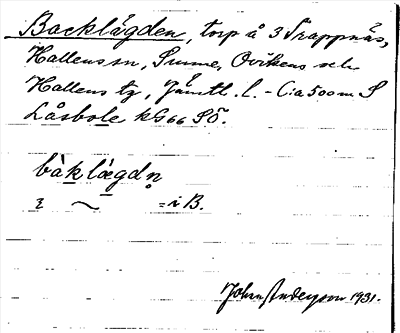 Backlägden, torp å 3 Trappnäs,
Hallens sn, Sunne, Ovikens och
Hallens tg, Jämtl. l. - Ca 500 m S
Låsbole kG66 SÖ.
bàk lægdn̥
= i B.
John Andersson 1931.